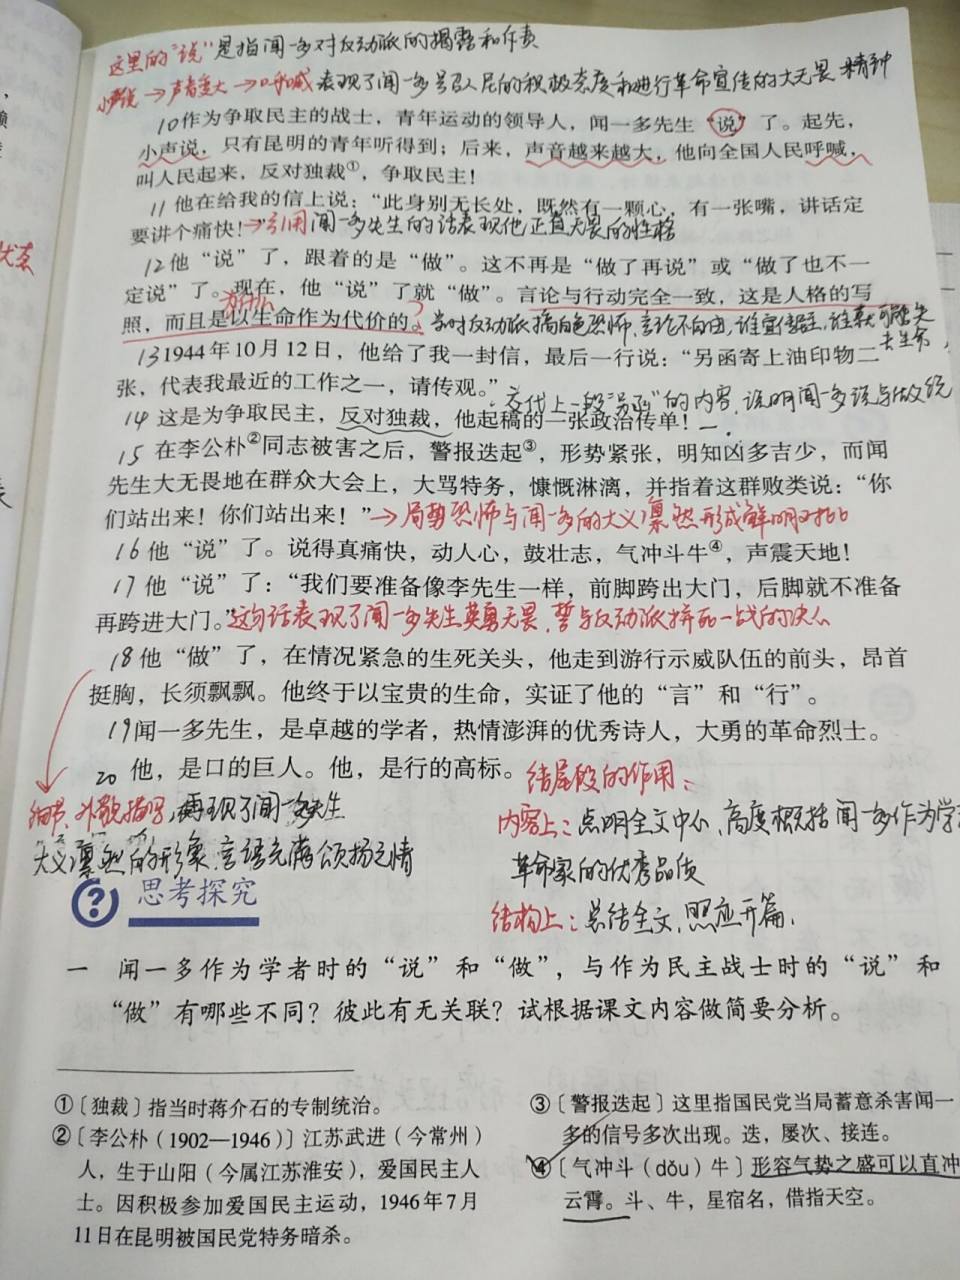 这里的"说"是指闻一多对反动派的揭露和斥责
小声说→声音变大→呼喊 表现了闻一多号召人民的积极态度和进行革命宣传的大无畏精神
10作为争取民主的战士，青年运动的领导人，闻一多先生“说”了。起先，
小声说，只有昆明的青年听得到；后来，声音越来越大，他向全国人民呼喊，
叫人民起来，反对独裁①，争取民主！
11他在给我的信上说：“此身别无长处，既然有一颗心，有一张嘴，讲话定
要讲个痛快！”→引用闻一多先生的话表现他正直无畏的性格
12他“说”了，跟着的是“做”。这不再是“做了再说”或“做了也不一
定说”了。现在，他“说”了就“做”。言论与行动完全一致，这是人格的写
为什么？
照，而且是以生命作为代价的。当时反动派搞白色恐怖，言论不自由，谁宣传民主，谁就可能失
去生命，
13 1944年10月12日，他给了我一封信，最后一行说：“另函寄上油印物二
张，代表我最近的工作之一，请传观。”
交代上一段“另函”的内容，说明闻一多说与做统
14 这是为争取民主，反对独裁，他起稿的一张政治传单！一.
15 在李公朴②同志被害之后，警报迭起③，形势紧张，明知凶多吉少，而闻
先生大无畏地在群众大会上，大骂特务，慷慨淋漓，并指着这群败类说：“你
们站出来！你们站出来！”→局势恐怖与闻一多的大义凛然形成鲜明对比
16他“说”了。说得真痛快，动人心，鼓壮志，气冲斗牛④，声震天地！
17他“说”了：“我们要准备像李先生一样，前脚跨出大门，后脚就不准备
再跨进大门。”这句话表现了闻一多先生英勇无畏、誓与反动派拼死一战的决心
18他“做”了，在情况紧急的生死关头，他走到游行示威队伍的前头，昂首
挺胸，长须飘飘。他终于以宝贵的生命，实证了他的“言”和“行”。
19闻一多先生，是卓越的学者，热情澎湃的优秀诗人，大勇的革命烈士。
20 他，是口的巨人。他，是行的高标。
结尾段的作用：
细节、外貌描写，再现了闻一多先生
大义凛然的形象，言语充满颂扬之情
内容上：点明全文中心，高度概括闻一多作为学
革命家的优秀品质
结构上：总结全文，照应开篇.
思考探究
一 闻一多作为学者时的“说”和“做”，与作为民主战士时的“说”和
“做”有哪些不同？彼此有无关联？试根据课文内容做简要分析。
①〔独裁〕指当时蒋介石的专制统治。
②〔李公朴（1902—1946）〕江苏武进（今常州）
人，生于山阳（今属江苏淮安），爱国民主人
士。因积极参加爱国民主运动，1946年7月
11日在昆明被国民党特务暗杀。
③〔警报迭起〕这里指国民党当局蓄意杀害闻一
多的信号多次出现。迭，屡次、接连。
④〔气冲斗（dǒu）牛〕形容气势之盛可以直冲
云霄。斗、牛，星宿名，借指天空。